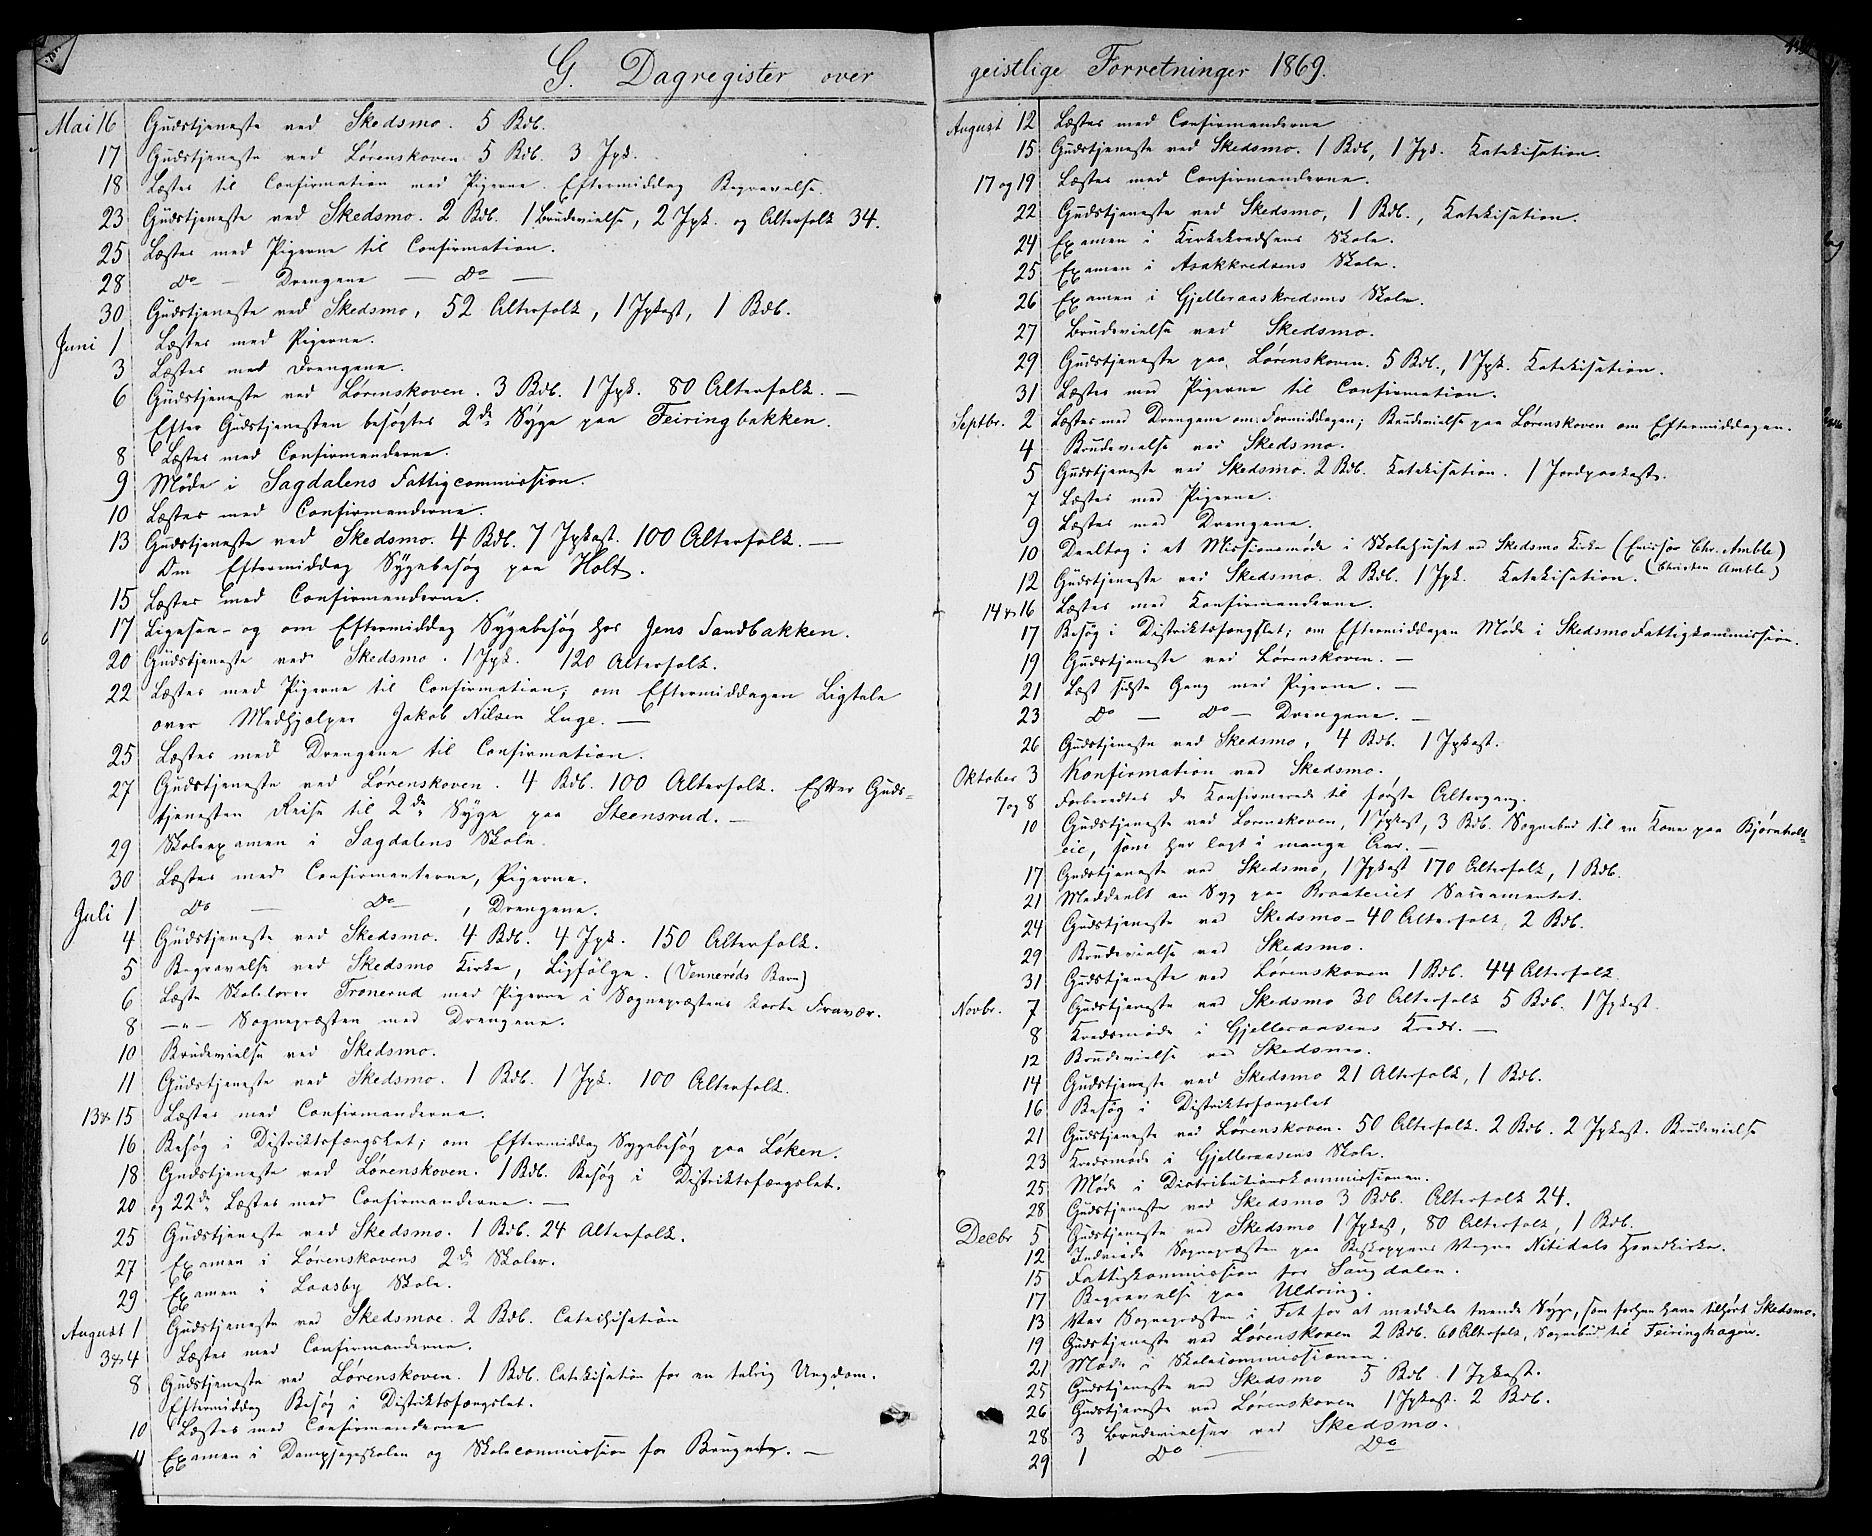 G. Dagregister over
Mai 16 Gudstjeneste ved Skedsmo. 5 Bdb.
17 Gudstjeneste ved Lørenskoven 5 Bdb. 3 Jpk.
18 Læstes til Confirmation med Pigerne. Eftermiddag Begravelse.
23 Gudstjeneste ved Skedsmo. 2 Bdb. 1 Brudevielse, 2 Jpk. og Alterfolk 34.
25 Læstes med Pigerne til Confirmation.
28 Do — Drengene — Do —
30 Gudstjeneste ved Skedsmo, 52 Alterfolk, 1 Jpkast, 1 Bdb.
Juni 1 Læstes med Pigerne.
3 Læstes med Drengene.
6 Gudstjeneste ved Lørenskoven. 3 Bdb. 1 Jpk. 80 Alterfolk. —
Efter Gudstjenesten besøgtes 2de Syge paa Feiringbakken.
8 Læstes med Confirmanderne.
9 Møde i Sagdalens Fattigcommission.
10 Læstes med Confirmanderne.
13 Gudstjeneste ved Skedsmo. 4 Bdb. 7 Jpkast. 100 Alterfolk. —
Om Eftermiddag Sygebesøg paa Holt.
15 Læstes med Confirmanderne.
17 Ligesaa- og om Eftermiddag Sygebesøg hos Jens Sandbakken.
20 Gudstjeneste ved Skedsmo. 1 Jpk. 120 Alterfolk.
22 Læstes med Pigerne til Confirmation; om Eftermiddagen Ligtale
over Medhjælper Jakob Nilsen Luge. —
25 Læstes med Drengene til Confirmation.
27 Gudstjeneste ved Lørenskoven. 4 Bdb. 100 Alterfolk. Efter Guds-
tjenesten Reise til 2de Syge paa Steensrud. —
29 Skoleexamen i Sagdalens Skole.
30 Læstes med Confirmanterne, Pigerne.
Juli 1 Do — Do — , Drengene.
4 Gudstjeneste ved Skedsmo. 4 Bdb. 4 Jpk. 150 Alterfolk.
5 Begravelse ved Skedsmo Kirke, Ligfølge. (Vennerøds Barn)
6 Læste Skolelærer Tronerud med Pigerne i Sognepræstens korte Fravær.
8 —„— Sognepræsten med Drengene.
10 Brudevielse ved Skedsmo.
11 Gudstjeneste ved Skedsmo. 1 Bdb. 1 Jpk. 100 Alterfolk.
13 & 15 Læstes med Confirmanderne.
16 Besøg i Distriktsfængslet; om Eftermiddag Sygebesøg paa Løken.
18 Gudstjeneste ved Lørenskoven. 1 Bdb. Besøg i Distriktsfængslet.
20 og 22de Læstes med Confirmanderne. —
25 Gudstjeneste ved Skedsmo. 1 Bdb. 24 Alterfolk.
27 Examen i Lørenskovens 2de Skoler.
29 Examen i Laasby Skole.
August 1 Gudstjeneste ved Skedsmoe. 2 Bdb. Catechisation
3 & 4 Læstes med Confirmanderne.
8 Gudstjeneste ved Lørenskoven. 1 Bdb. Catekisation for en talrig Ungdom.
Eftermiddag Besøg i Distriktsfængslet.
10 Læstes med Confirmanderne
11 Examen i Dampsageskolen og Skolecommission for —
geistlige Forretninger 1869.
August 12 Læstes med Confirmanderne
15 Gudstjeneste ved Skedsmo. 1 Bdb, 1 Jpk. Katekisation.
17 og 19 Læstes med Confirmanderne.
22 Gudstjeneste ved Skedsmo, 1 Bdb., Katekisation.
24 Examen i Kirkekredsens Skole.
25 Examen i Asakkredsens Skole.
26 Examen i Gjelleraaskredsens Skole.
27 Brudevielse ved Skedsmo.
29 Gudstjeneste paa Lørenskoven. 5 Bdb., 1 Jpk. Katekisation.
31 Læstes med Pigerne til Confirmation.
Septbr. 2 Læstes med Drengene om Formiddagen; Brudevielse paa Lørenskoven om Eftermiddagen.
4 Brudevielse ved Skedsmo.
5 Gudstjeneste ved Skedsmo. 2 Bdb. Katekisation. 1 Jordpaakast.
7 Læstes med Pigerne.
9 Læstes med Drengene.
10 Deeltog i et Missionsmøde i Skolehuset ved Skedsmo Kirke (Emissær Chr. Amble)
(Christen Amble)
12 Gudstjeneste ved Skedsmo. 2 Bdb. 1 Jpk. Katekisation.
14 & 16 Læstes med Konfirmanderne.
17 Besøg i Distriktsfængslet; om Eftermiddagen Møde i Skedsmo Fattigkommission.
19 Gudstjeneste ved Lørenskoven. —
21 Læst sidste Gang med Pigerne. —
23 Do — Do — Drengene. —
26 Gudstjeneste ved Skedsmo, 4 Bdb. 1 Jpkast.
Oktober 3 Konfirmation ved Skedsmo.
7 og 8 Forberedtes de Konfirmerede til første Altergang.
10 Gudstjeneste ved Lørenskoven, 1 Jpkast, 3 Bdb. Sognebud til en Kone paa Bjørnholt-
eie, som har lagt i mange Aar. —
17 Gudstjeneste ved Skedsmo, 1 Jpkast 170 Alterfolk, 1 Bdb.
21 Meddeelt en Syg paa Braateeiet Sacramentet.
24 Gudstjeneste ved Skedsmo — 40 Alterfolk, 2 Bdb.
29 Brudevielse ved Skedsmo.
31 Gudstjeneste ved Lørenskoven 1 Bdb. 44 Alterfolk
Novbr. 7 Gudstjeneste ved Skedsmo 30 Alterfolk 5 Bdb. 1 Jpkast.
8 Kredsmøde i Gjelleraasens Kreds. —
12 Brudevielse ved Skedsmo.
14 Gudstjeneste ved Skedsmo 21 Alterfolk, 1 Bdb.
16 Besøg i Distriktsfængslet
21 Gudstjeneste ved Lørenskoven. 50 Alterfolk. 2 Bdb. 2 Jpkast. Brudevielse
23 Kredsmøde i Gjelleraasens Skole.
25 Møde i Distributionskommissionen.
28 Gudstjeneste ved Skedsmo 3 Bdb. Alterfolk 24.
Decbr 5 Gudstjeneste ved Skedsmo 1 Jpkast, 80 Alterfolk, 1 Bdb.
12 Indviede Sognepræsten paa Biskoppens Vegne Nitedals Hovedkirke.
15 Fattigkommission for Saugdalen.
17 Begravelse paa Uldring.
13 Var Sognepræsten i Fet for at meddele trende Syge, som forhen have tilhørt Skedsmo.
19 Gudstjeneste ved Lørenskoven 2 Bdb. 60 Alterfolk, Sognebud til Feiringhagen.
21 Møde i Skolecommissionen.
25 Gudstjeneste ved Skedsmo 5 Bdb. 1 Jpkast.
26 Gudstjeneste ved Lørenskoven 1 Jpkast. 2 Bdb.
28 3 Brudevielser ved Skedsmo.
29 1 Do — Do